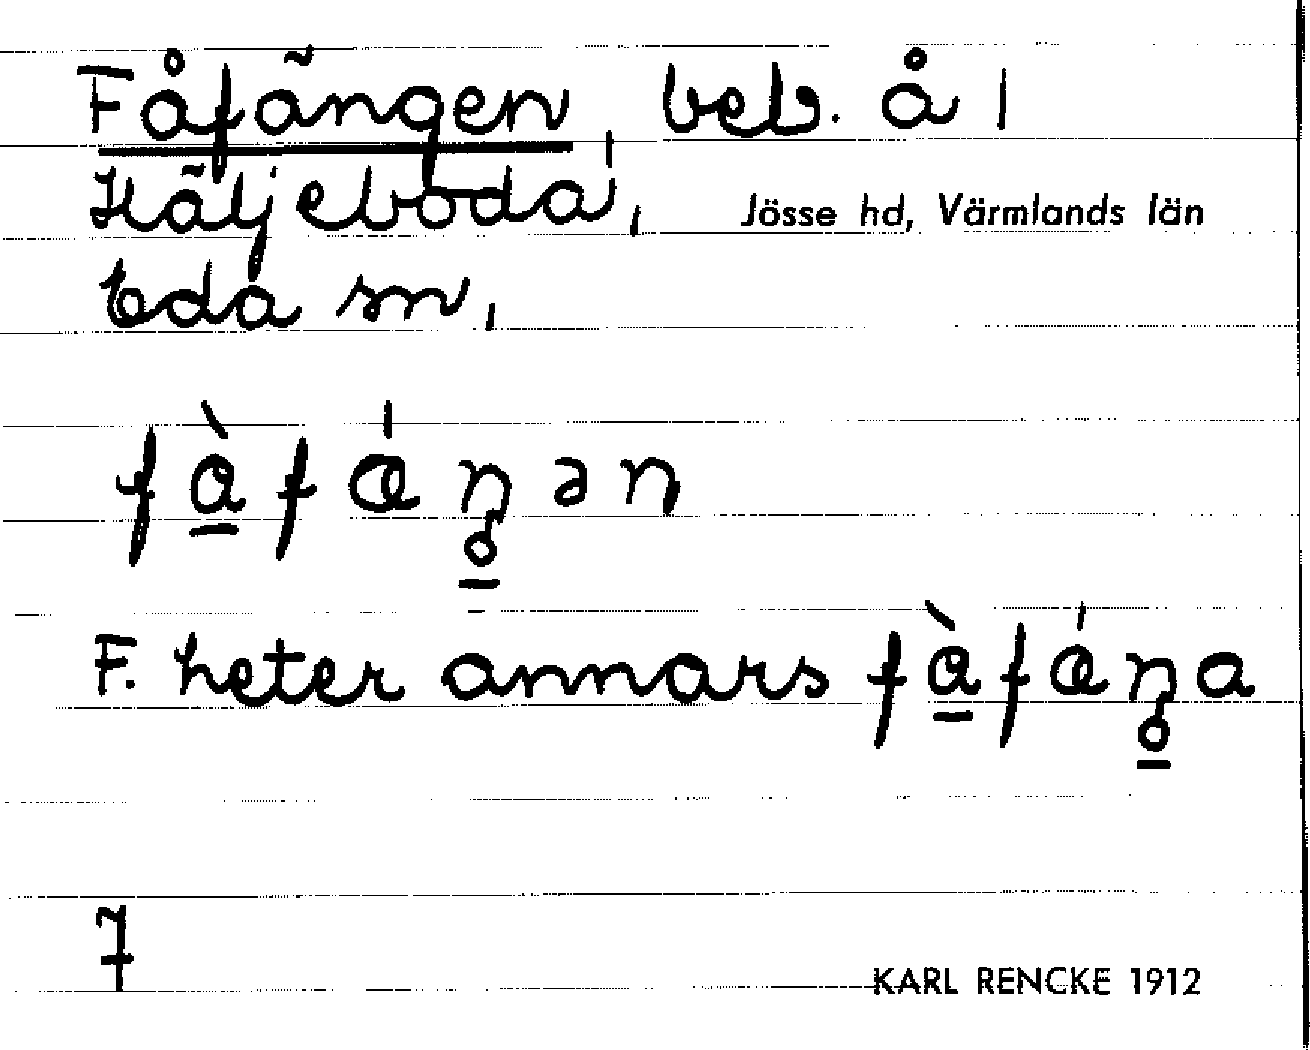 Fåfängen, beb. å |
Häljeboda, Jösse hd, Värmlands län
Eda sn,
fàfáŋən
F. heter annars fàfáŋa
7
KARL RENCKE 1912